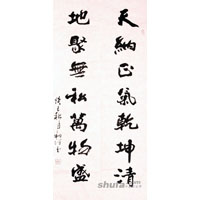 天納正氣乾坤清
地聚無私萬物盛